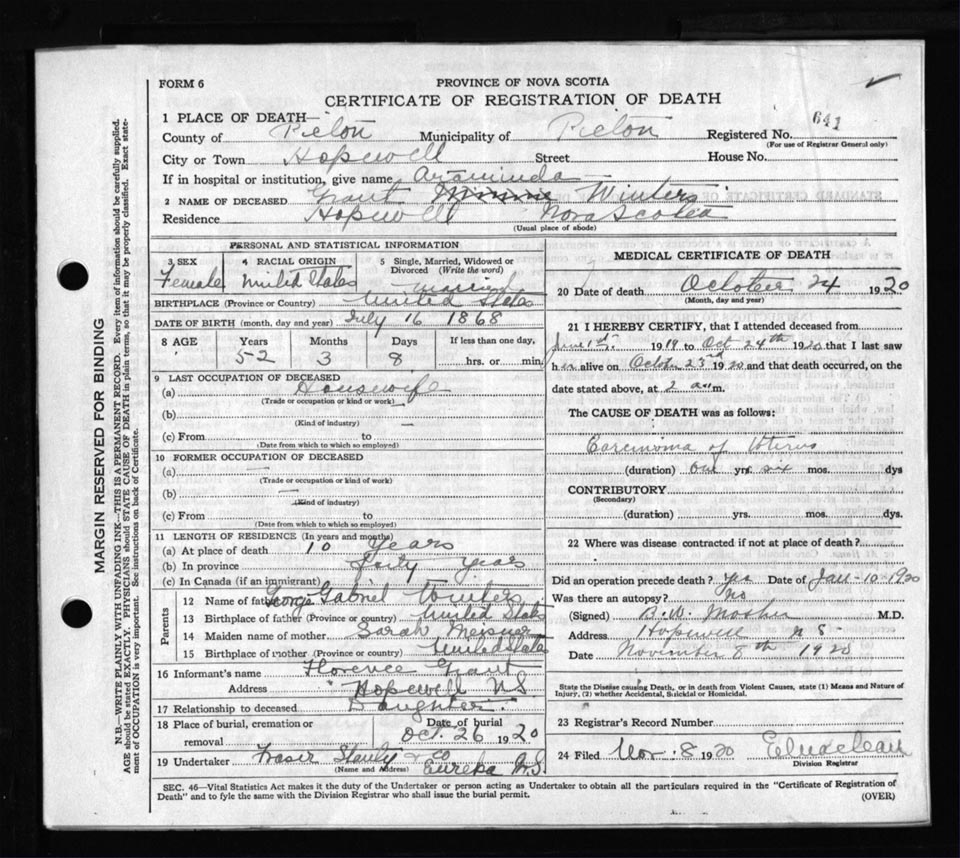 FORM 6
PROVINCE OF NOVA SCOTIA
CERTIFICATE OF REGISTRATION OF DEATH
1 PLACE OF DEATH—
County of Pictou Municipality of Pictou Registered No. 641
(For use of Registrar General only)
City or Town Hopewell Street House No.
If in hospital or institution, give name Araminda
2 NAME OF DECEASED Grant Winters
Residence Hopewell Nova Scotia
(Usual place of abode)
PERSONAL AND STATISTICAL INFORMATION
3 SEX 4 RACIAL ORIGIN 5 Single, Married, Widowed or Divorced (Write the word)
Female United States married
BIRTHPLACE (Province or Country) United States
DATE OF BIRTH (month, day and year) July 16 1868
8 AGE Years Months Days If less than one day,
52 3 8 hrs. or min.
9 LAST OCCUPATION OF DECEASED
(a) Housewife
(Trade or occupation or kind or work)
(b)
(Kind of industry)
(c) From to
(Date from which to which so employed)
10 FORMER OCCUPATION OF DECEASED
(a) —
(Trade or occupation or kind of work)
(b) —
(Kind of industry)
(c) From to
(Date from which to which so employed)
11 LENGTH OF RESIDENCE (In years and months)
(a) At place of death 10 years
(b) In province Forty years
(c) In Canada (if an immigrant)
Parents
12 Name of father George Gabriel Winters
13 Birthplace of father (Province or country) United States
14 Maiden name of mother Sarah Meisner
15 Birthplace of mother (Province or country) United States
16 Informant's name Florence Grant
Address Hopewell N.S.
17 Relationship to deceased Daughter.
18 Place of burial, cremation or removal Date of burial Oct. 26 1920
19 Undertaker Fraser & Co Eureka N.S.
(Name and Address)
MEDICAL CERTIFICATE OF DEATH
20 Date of death October 24 1920
(Month, day and year)
21 I HEREBY CERTIFY, that I attended deceased from
June 1st 1919 to Oct 24th 1920 that I last saw
her alive on October 23rd 1920 and that death occurred, on the
date stated above, at 2 a.m.
The CAUSE OF DEATH was as follows:
Carcinoma of Uterus
(duration) one yrs. six mos. dys
CONTRIBUTORY
(Secondary)
(duration) yrs. mos. dys.
22 Where was disease contracted if not at place of death?
Did an operation precede death? Yes Date of Jan-10-1920
Was there an autopsy? No
(Signed) B.W. Mosher M.D.
Address Hopewell N S
Date November 8th 1920
State the Disease causing Death, or in death from Violent Causes, state (1) Means and Nature of
Injury, (2) whether Accidental, Suicidal or Homicidal.
23 Registrar's Record Number
24 Filed Nov. 8 1920
Division Registrar
SEC. 46—Vital Statistics Act makes it the duty of the Undertaker or person acting as Undertaker to obtain all the particulars required in the "Certificate of Registration of
Death" and to fyle the same with the Division Registrar who shall issue the burial permit.
(OVER)
MARGIN RESERVED FOR BINDING
N.B.—WRITE PLAINLY WITH UNFADING INK—THIS IS A PERMANENT RECORD. Every item of information should be carefully supplied.
AGE should be stated EXACTLY. PHYSICIANS should STATE CAUSE OF DEATH in plain terms, so that it may be properly classified. Exact state-
ment of OCCUPATION is very important. See instructions on back of Certificate.